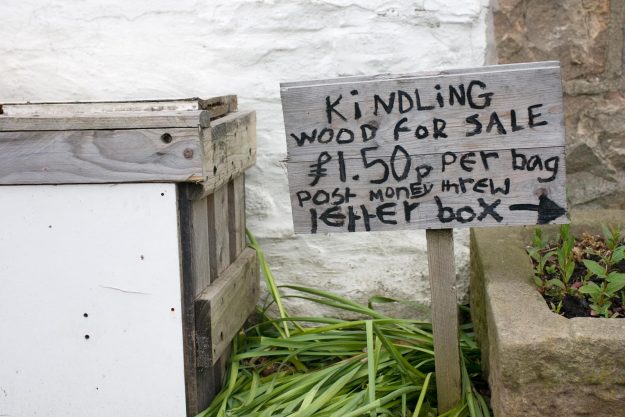 KiNDLiNG
WOOD FOR SALE
£1.50p PER bag
POST MONEY THREW
lETTER bOX →